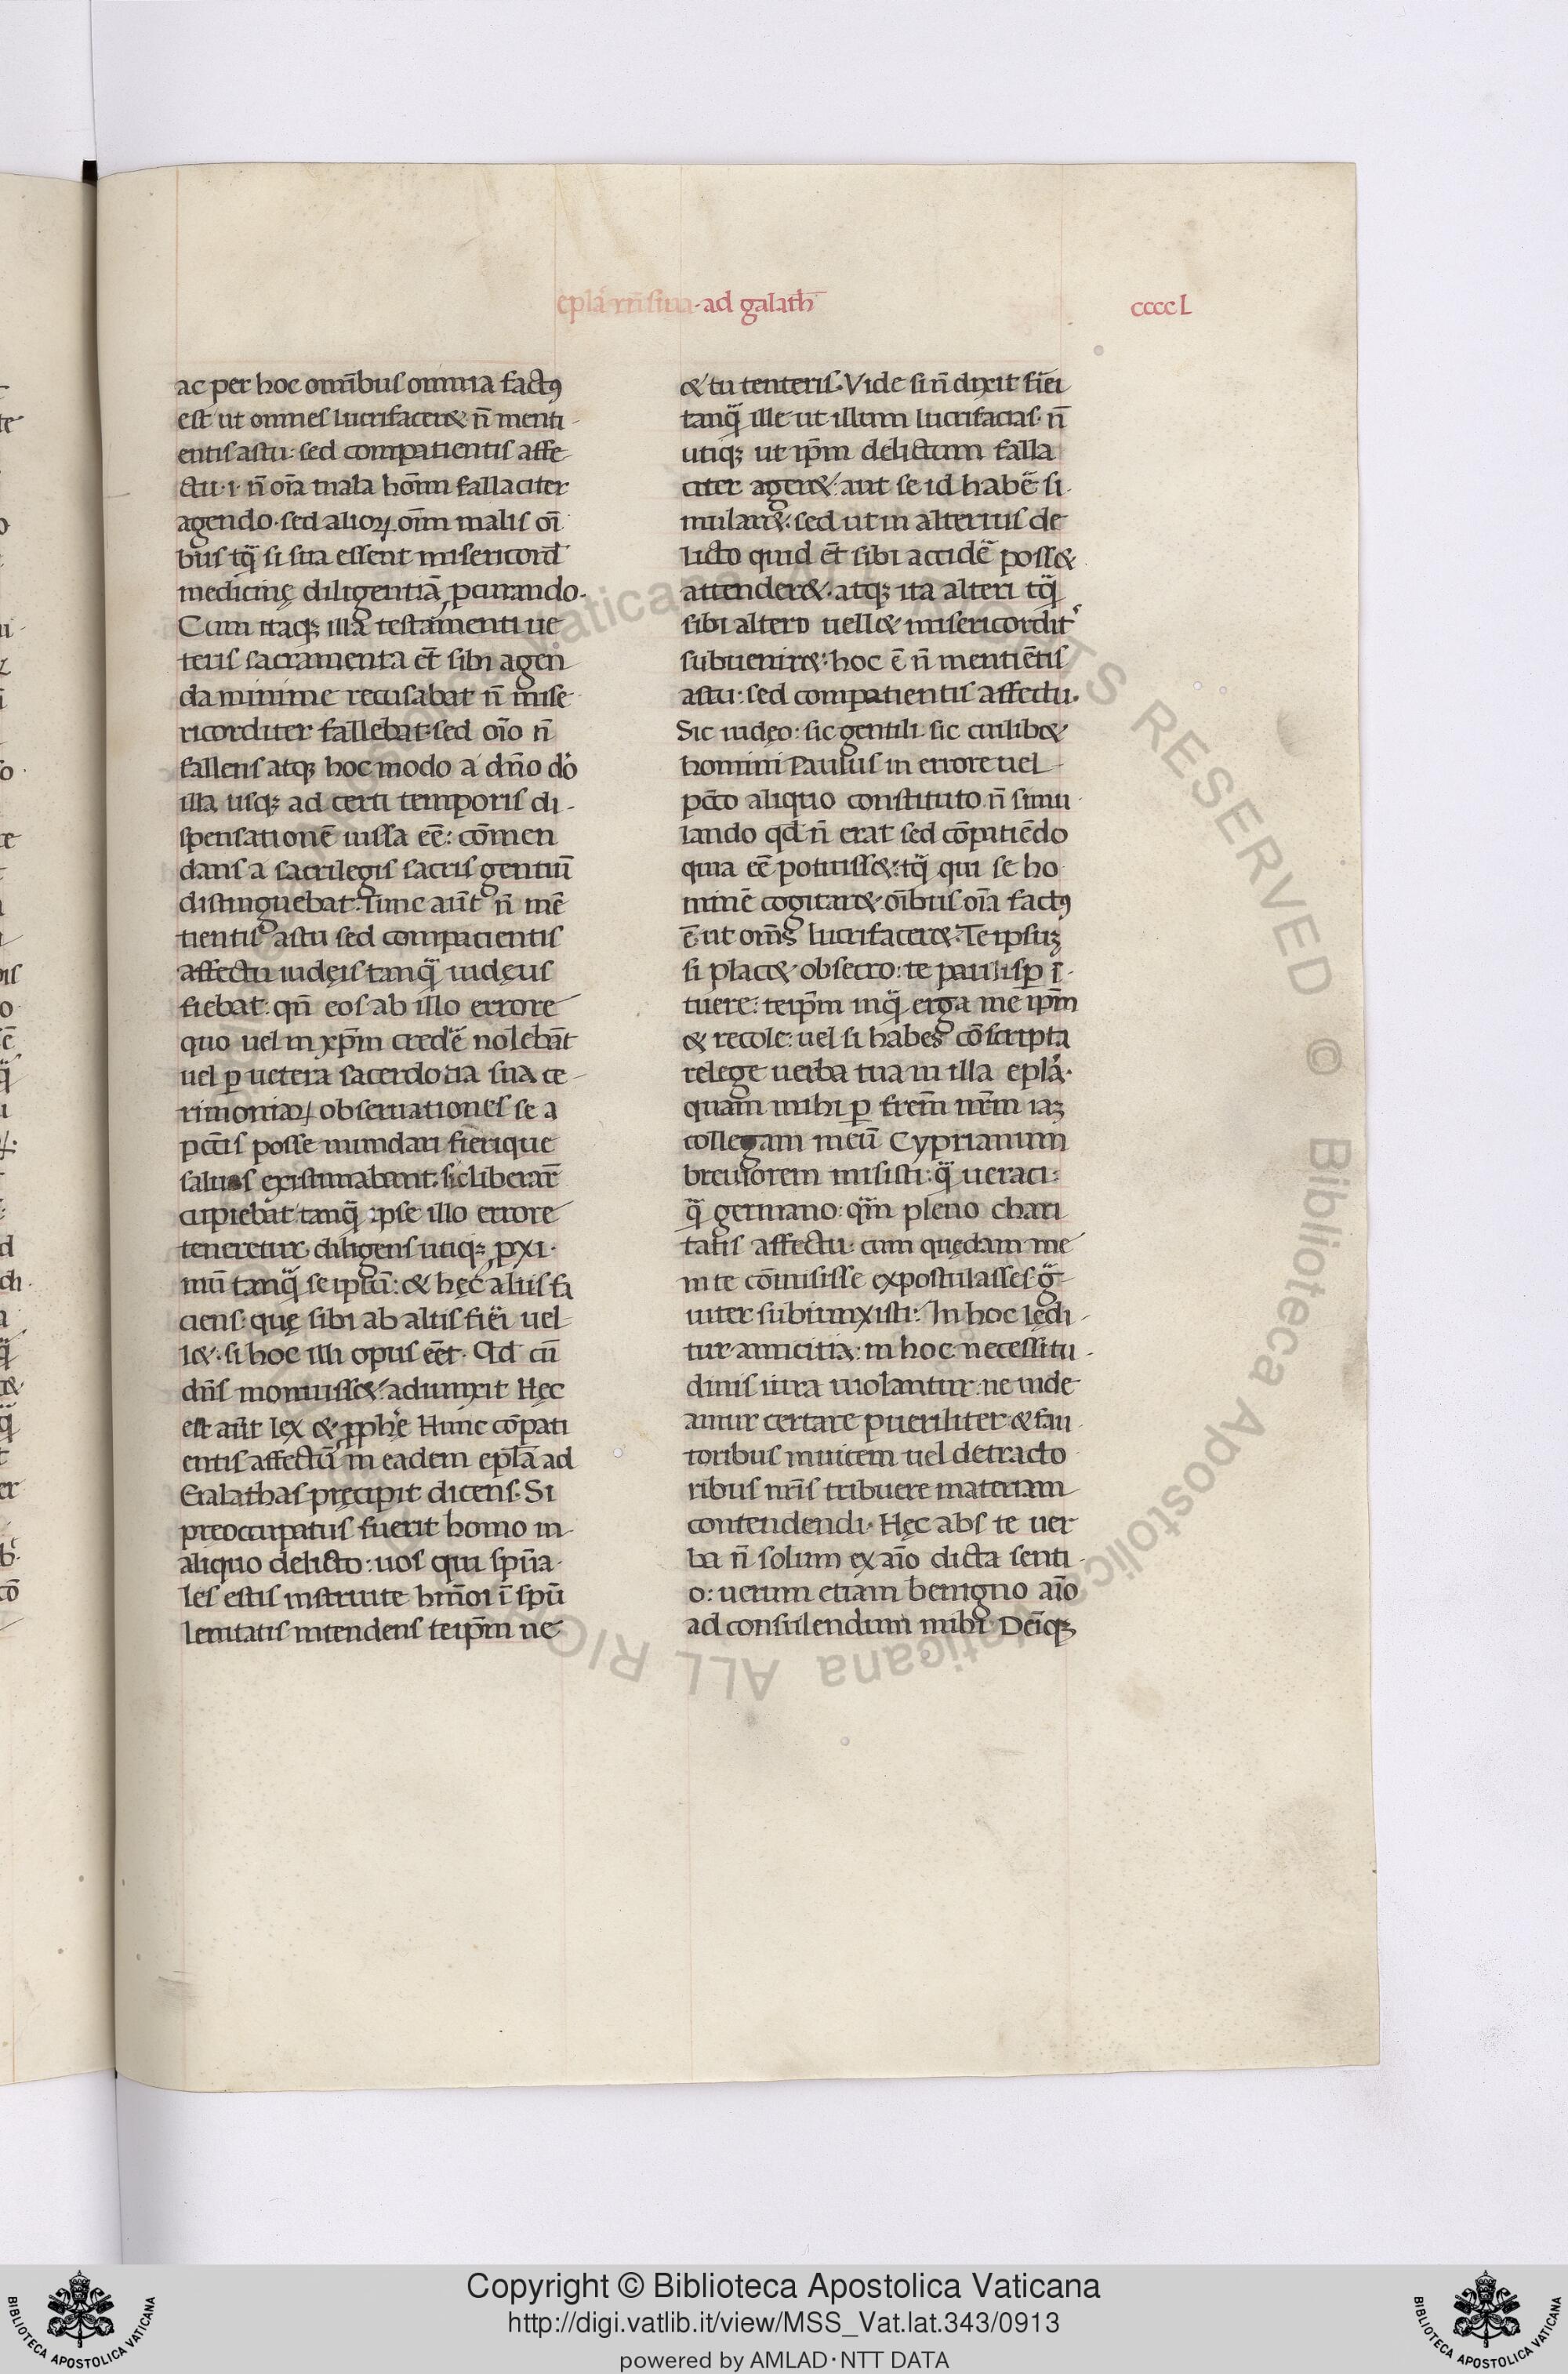 epla nrissima · ad galath̄
ccccL
ac per hoc omībus omnia factꝰ
est ut omnes lucrifaceret n̄ menti-
entis astu: sed compatientis affe-
ctu · i · n̄ oīa mala hom̄m fallaciter
agendo · sed alioꝝ oīm malis oī
bus tq̄ si sua essent misericord̄
medicinę diligentiā ꝓcurando ·
Cum itaqꝫ illa testamenti ue
teris sacramenta et̄ sibi agen
da minime recusabat n̄ mise
ricorditer fallebat · sed oīo n̄
fallens atqꝫ hoc modo a dn̄o do
illa usqꝫ ad certi temporis di-
spensationē iussa eē: cōmen
dans a sacrilegis sacris gentiū
distinguebat. Tunc aūt n̄ mē
tientis astu sed compatientis
affectu iudęis tanq̄ iudęus
fiebat: qn̄ eos ab illo errore
quo uel in xp̄m credē nolebāt
uel ꝑ uetera sacerdotia sua ce-
rimoniaꝝ obseruationes se a
pctīs posse mundari fierique
saluos existimabant: sic liberar̄
cupiebat tanq̄ ipse illo errore
teneretur · diligens utiqꝫ ꝓxi ·
mū tanq̄ se ipsū: & hęc aliis fa
ciens: quę sibi ab aliis fiēi uel-
let · si hoc illi opus eēt · Qd cū
dn̄s monuisset adiunxit Hęc
est aūt lex & ꝓphē Hunc cōpati
entis affectū in eadem epl̄a ad
Galathas pręcipit dicens · Si
preoccupatus fuerit homo in
aliquo delicto: uos qui spūa-
les estis instruite hm̄oi ī spū
lenitatis intendens teip̄m ne
& tu tenteris. Vide si n̄ dixit fiēi
tanq̄ ille ut illum lucrifacias · n̄
utiqꝫ ut ip̄m delictum falla
citer ageret aut se id habē si-
mularet · sed ut in alterius de
licto quid et̄ sibi accidē posset
attenderet · atqꝫ ita alteri tq̄
sibi altero uellet misericordit
subuenire: hoc ē n̄ mentiētis
astu: sed compatientis affectu.
Sic iudęo: sic gentili: sic cuilibet
homini Paulus in errore uel
pctō aliquo constituto n̄ simu-
lando qd n̄ erat sed cōpatiēdo
quia eē potuisset: tq̄ qui se ho
minē cogitaret oībus oīa factꝰ
ē ut om̄s lucrifaceret. Te ipsuꝫ
si placet obsecro: te paulisꝑ ī-
tuere: teip̄m inq̄ erga me ip̄m
& recole: uel si habes cōscripta
relege uerba tua in illa epla ·
quam mihi ꝑ frem̄ nr̄m iaꝫ
collegam meū Cyprianum
breuiorem misisti: q̄ ueraci:
q̄ germano: qm̄ pleno chari
tatis affectu: cum quędam me
in te cōmisisse expostulasses g̃-
uiter subiunxisti: In hoc lędi-
tur amicitia: in hoc necessitu-
dinis iura uiolantur: ne uide
amur certare pueriliter: & fau-
toribus inuicem uel detracto
ribus nr̄is tribuere materiam
contendendi · Hęc abs te uer
ba n̄ solum ex aīo dicta senti-
o: uerum etiam benigno aīo
ad consulendum mihi · Deīqꝫ
Copyright © Biblioteca Apostolica Vaticana
http://digi.vatlib.it/view/MSS_Vat.lat.343/0913
powered by AMLAD·NTT DATA